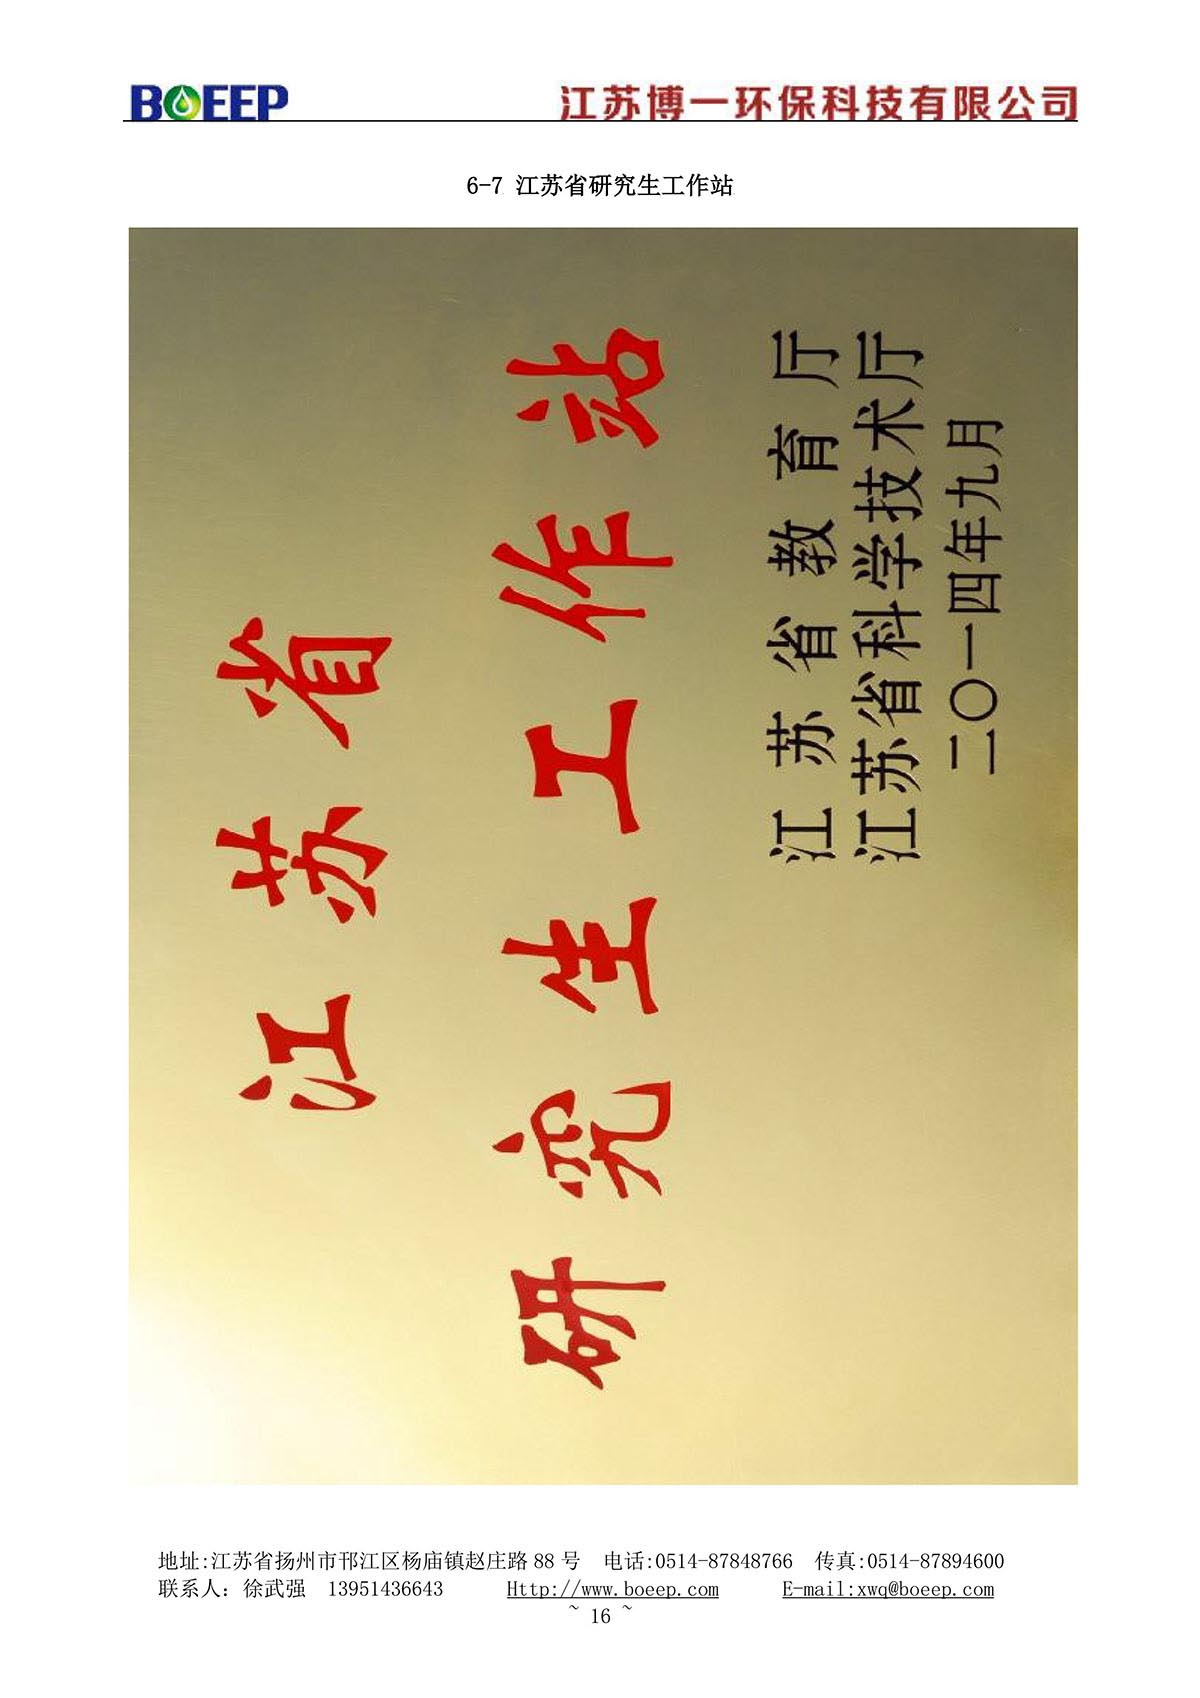 BOEEP
江苏博一环保科技有限公司
6-7 江苏省研究生工作站
江苏省
研究生工作站
江苏省教育厅
江苏省科学技术厅
二〇一四年九月
地址:江苏省扬州市邗江区杨庙镇赵庄路 88 号 电话:0514-87848766 传真:0514-87894600
联系人: 徐武强 13951436643 Http://www.boeep.com E-mail:xwq@boeep.com
~ 16 ~